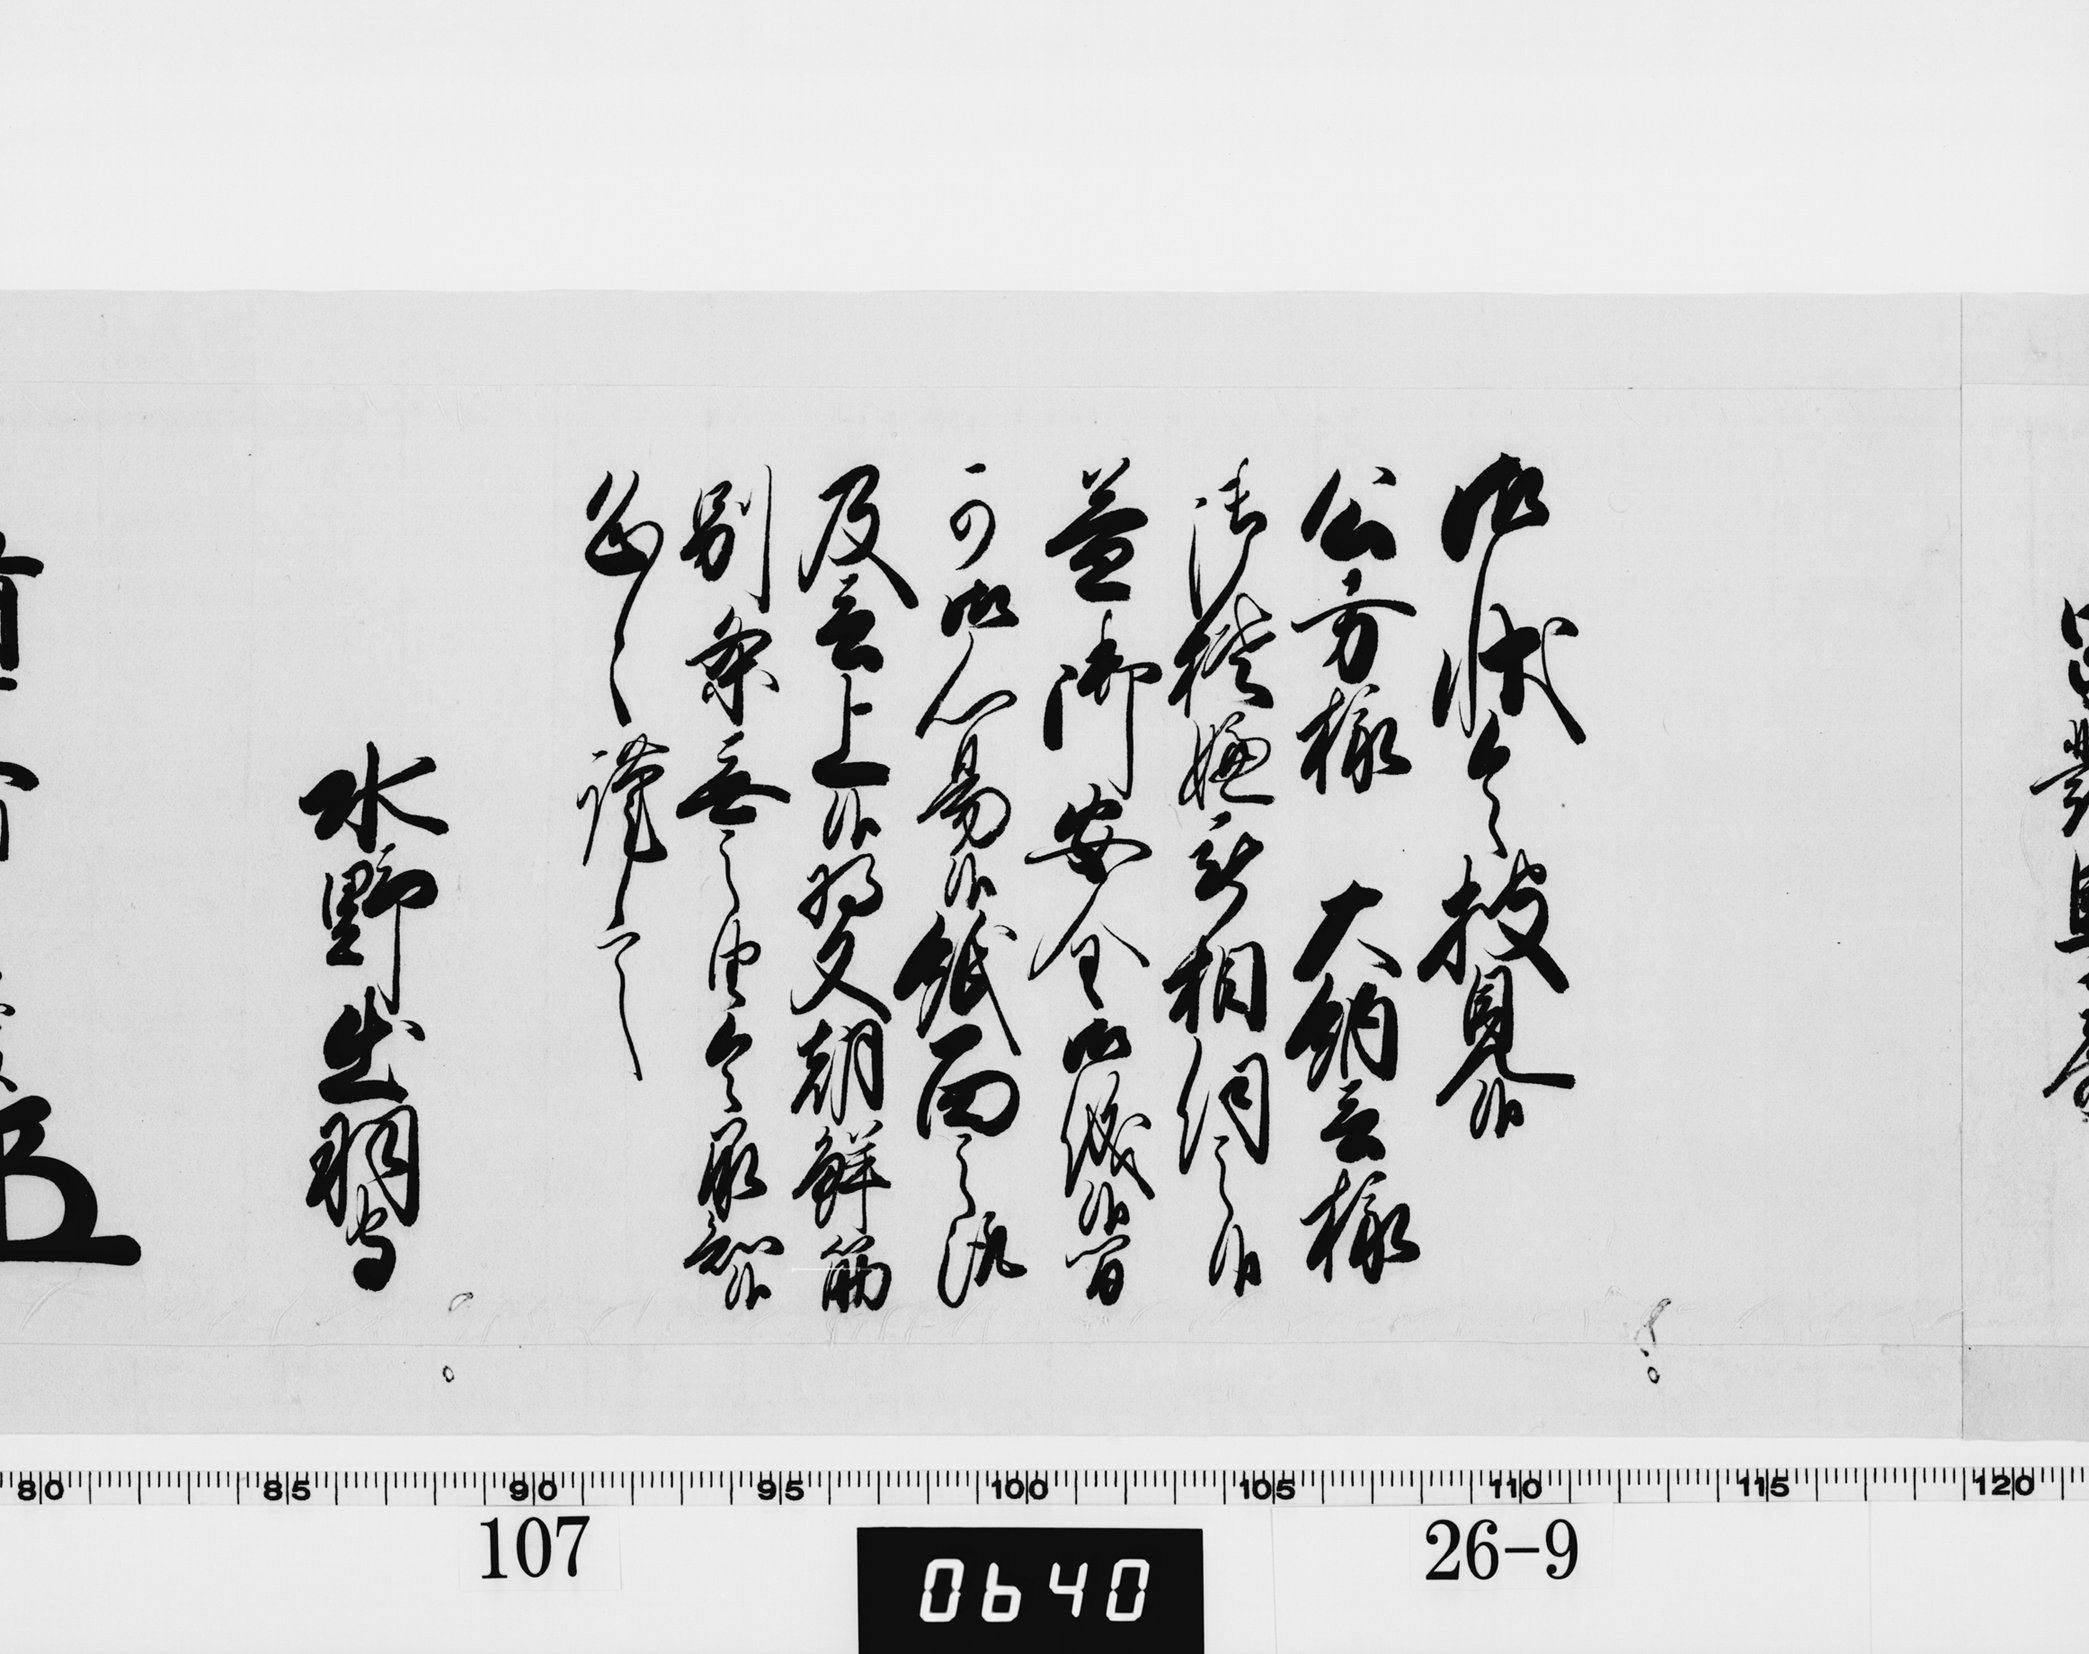 御状令披見候
公方様 大納言様
御機嫌被相伺之候
益御安全御儀候間
可御心易候紙面之趣
及言上候将又朝鮮筋
別条無之由令承知候
恐々謹言
水野出羽守
80 85 90 95 100 105 110 115 120
107
0640
26-9